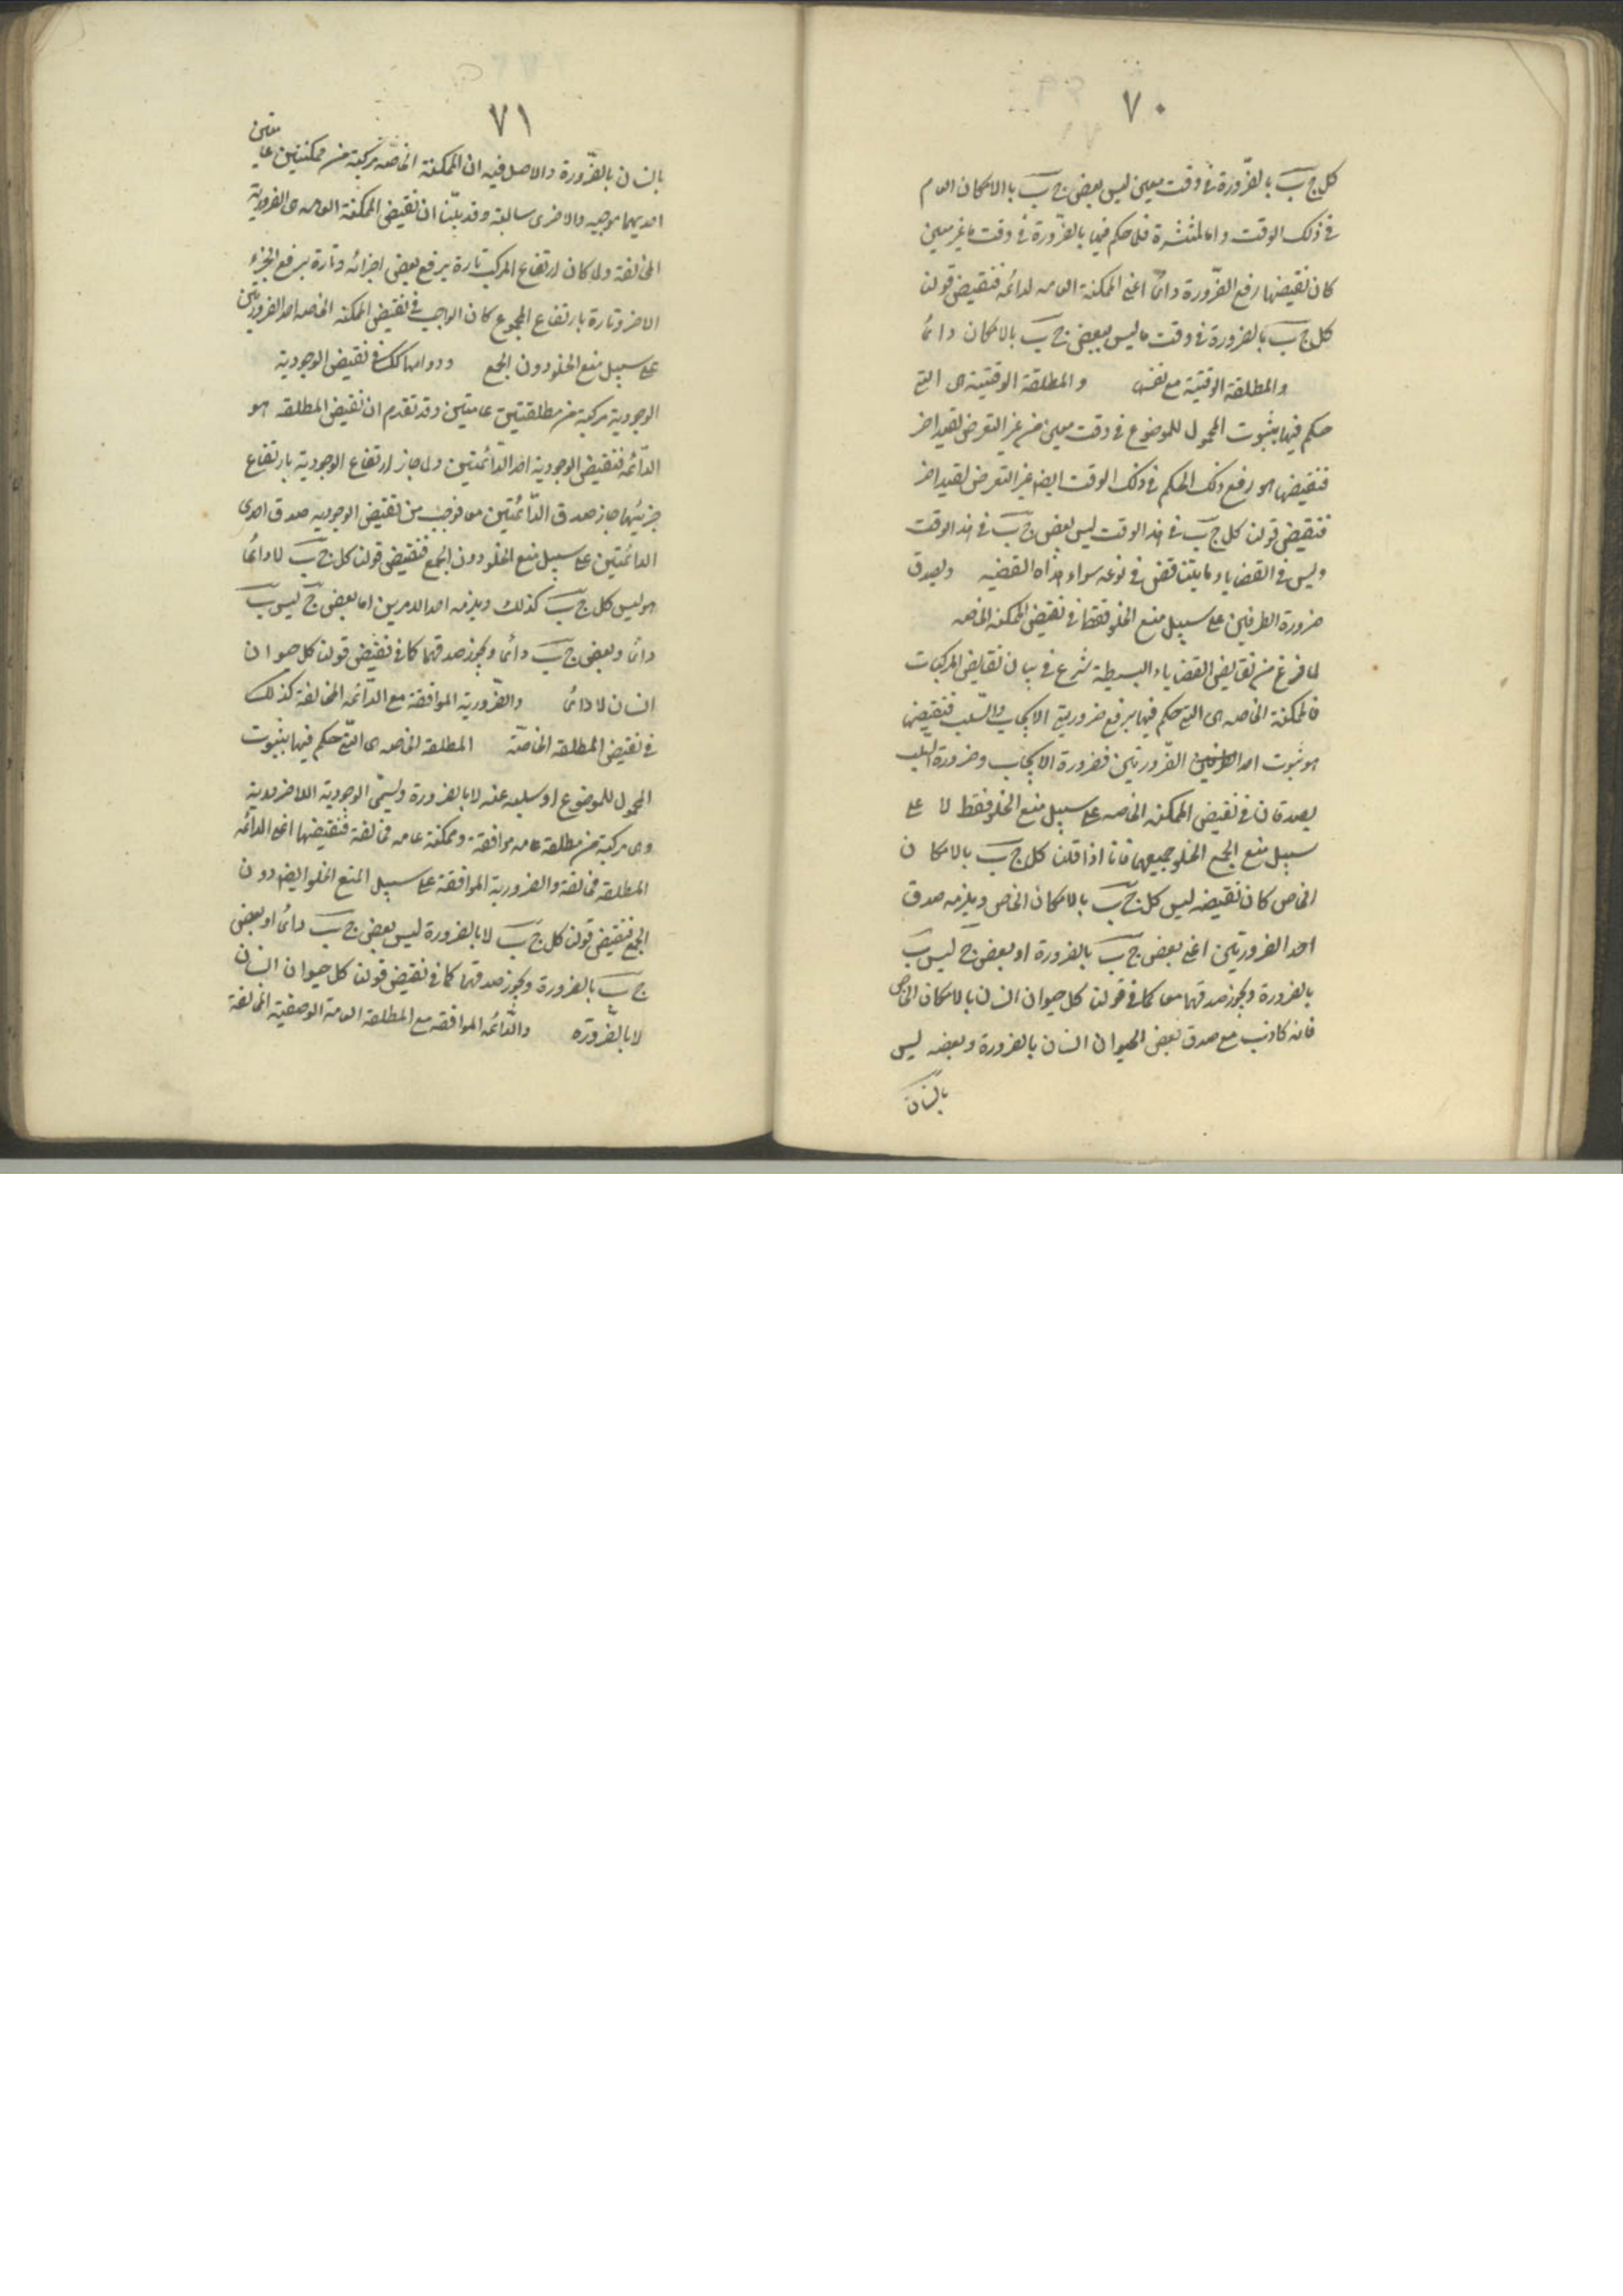 ٧٠
كل ج ب بالضّرورة فى وقت معين ليس بعض ج ب بالامكان العام
فى ذلك الوقت واما المنتشرة فلما حكم فيها بالضّرورة فى وقت ما غير معين
كان نقيضها رفع الضّرورة دائما اعنى الممكنة العامه الدائمه فنقيض قولنا
كل ج ب بالضرورة فى وقت ما ليس بعض ج ب بالامكان دائما
والمطلقة الوقتية مع نفسها والمطلقة الوقتيته هى التى
حكم فيها بثبوت المحمول للموضوع فى وقت معين من غير التعرض لقيد اخر
فنقيضها هو رفع ذلك الحكم فى ذلك الوقت ايضا من غير التعرض لقيد اخر
فنقيض قولنا كل ج ب فى هذا الوقت ليس بعض ج ب فى هذا الوقت
وليس فى القضايا وما يتناقض فى نوعه سواء هذاه القضيه ويصدق
ضرورة الطرفين على سبيل منع الخلو فقط فى نقيض الممكنه الخاصه
لما فرغ من نقايض القضاياء البسيطة شرع فى بيان نقايض المركبات
فالممكنة الخاصه هى التى حكم فيها برفع ضرورية الايجاب والسّلب فنقيضها
هو ثبوت احد الضّرورتين فضرورة الايجاب وضرورة السّلب
يصدقان فى نقيض الممكنه الخاصه على سبيل منع الخلو فقط لا على
سبيل منع الجمع الخلو جميعهما فانا اذا قلنا كل ج ب بالامكان
الخاص كان نقيضه ليس كل ج ب بالامكان الخاص ويلزمه صدق
احد الضرورتين اعنى بعض ج ب بالضرورة او بعض ج ليس ب
بالضرورة ويجوز صدقهما معا كما فى قولنا كل حيوان انسان بالامكان الخاص
فانه كاذب مع صدق بعض الحيوان انسان بالضرورة وبعضه ليس
بانسان
٧١
بانسان بالضّرورة والاصل فيه ان الممكنة الخاصّه مركبة من ممكنتين عامتين
احديهما موجبه والاخرى سالبة وقد بيّنا ان نقيض الممكنة العامه هى الضرورية
المخالفة ولما كان ارتفاع المركب تارة برفع بعض اجزائه وتارة برفع الجزء
الاخر وتارة بارتفاع المجموع كان الواجب فى نقيض الممكنه الخاصه احد الضرورتين
على سبيل منع الخلو دون الجمع ودوامهما كك فى نقيض الوجودية
الوجودية مركبة من مطلقتين عامتين وقد تقدم ان نقيض المطلقه هو
الدّائمه فنقيض الوجودية احد الدّائمتين ولما جاز ارتفاع الوجودية بارتفاع
جزئيها جاز صدق الدّائمتين معا فوجب من نقيض الوجوديه صدق احدى
الدائمتين على سبيل منع الخلو دون الجمع فنقيض قولنا كل ج ب لا دائما
هو ليس كل ج ب كذلك ويلزمه احد الامرين اما بعض ج ليس ب
دائما وبعض ج ب دائما ويجوز صدقهما كما فى نقيض قولنا كل حيوان
انسان لا دائما والضّرورية الموافقة مع الدّائمه المخالفة كذلك
فى نقيض المطلقه الخاصّة المطلقه الخاصه هى التى حكم فيها بثبوت
المحمول للموضوع او سلبه عنه لا بالضرورة وتسمّى الوجودية اللاضرورية
وهى مركبة من مطلقة عامه موافقة وممكنة عامه مخالفة فنقيضها اعنى الدائمه
المطلقه مخالفة والضرورية الموافقة على سبيل المنع الخلو ايضا دون
الجمع فنقيض قولنا كل ج ب لا بالضرورة ليس بعض ج ب دائما او بعض
ج ب بالضرورة ويجوز صدقهما كما فى نقيض قولنا كل حيوان انسان
لا بالضّرورة والدّائمه الموافقه مع المطلقه العامة الوصفية المخالفة